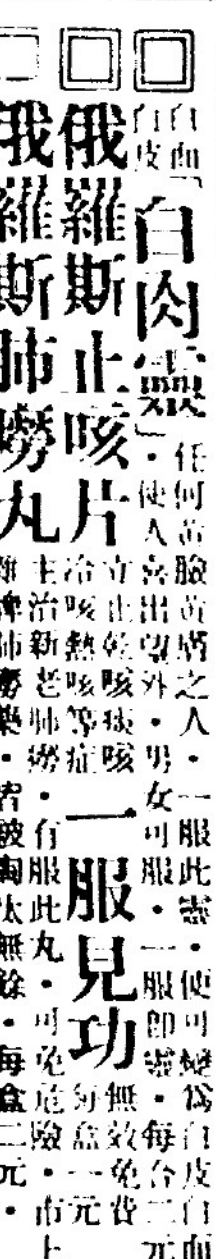 白血
白皮
「白肉靈」
任何黃臉黃膚之人・一服此靈・便可變爲白皮白血
・使人喜出望外・男女可服・一服即靈・每盒二元
俄羅斯止咳片
立止乾咳痰咳
冷咳熱咳等症
一服見功
無效免費
每盒一元
俄羅斯肺癆丸
主治新老肺癆・有服此丸・可免危險・市上
雜牌肺癆藥・皆被淘汰無餘・每盒二元・